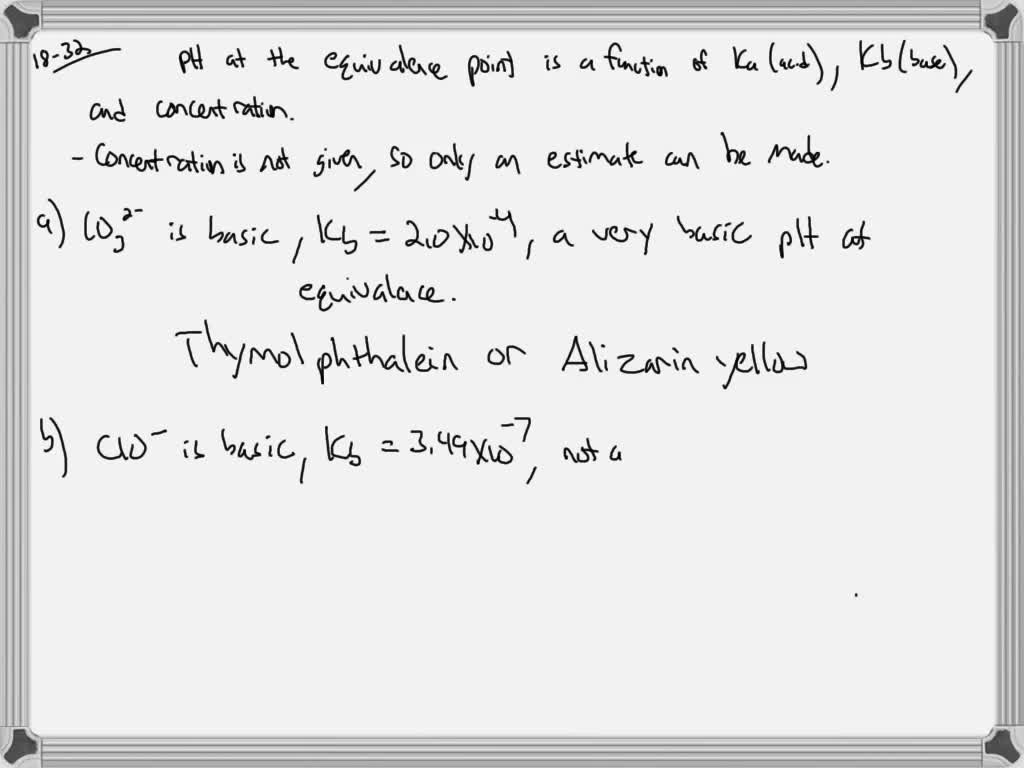 18-32 pH at the equivalence point is a function of Ka (acid), Kb (base),
and concentration.
- Concentration is not given, so only an estimate can be made.
a) CO₃²⁻ is basic, Kb = 2.0 x10⁻⁴, a very basic pH at
equivalace.
Thymolphthalein or Alizarin yellow
b) ClO⁻ is basic, Kb = 3.49 x10⁻⁷, not a